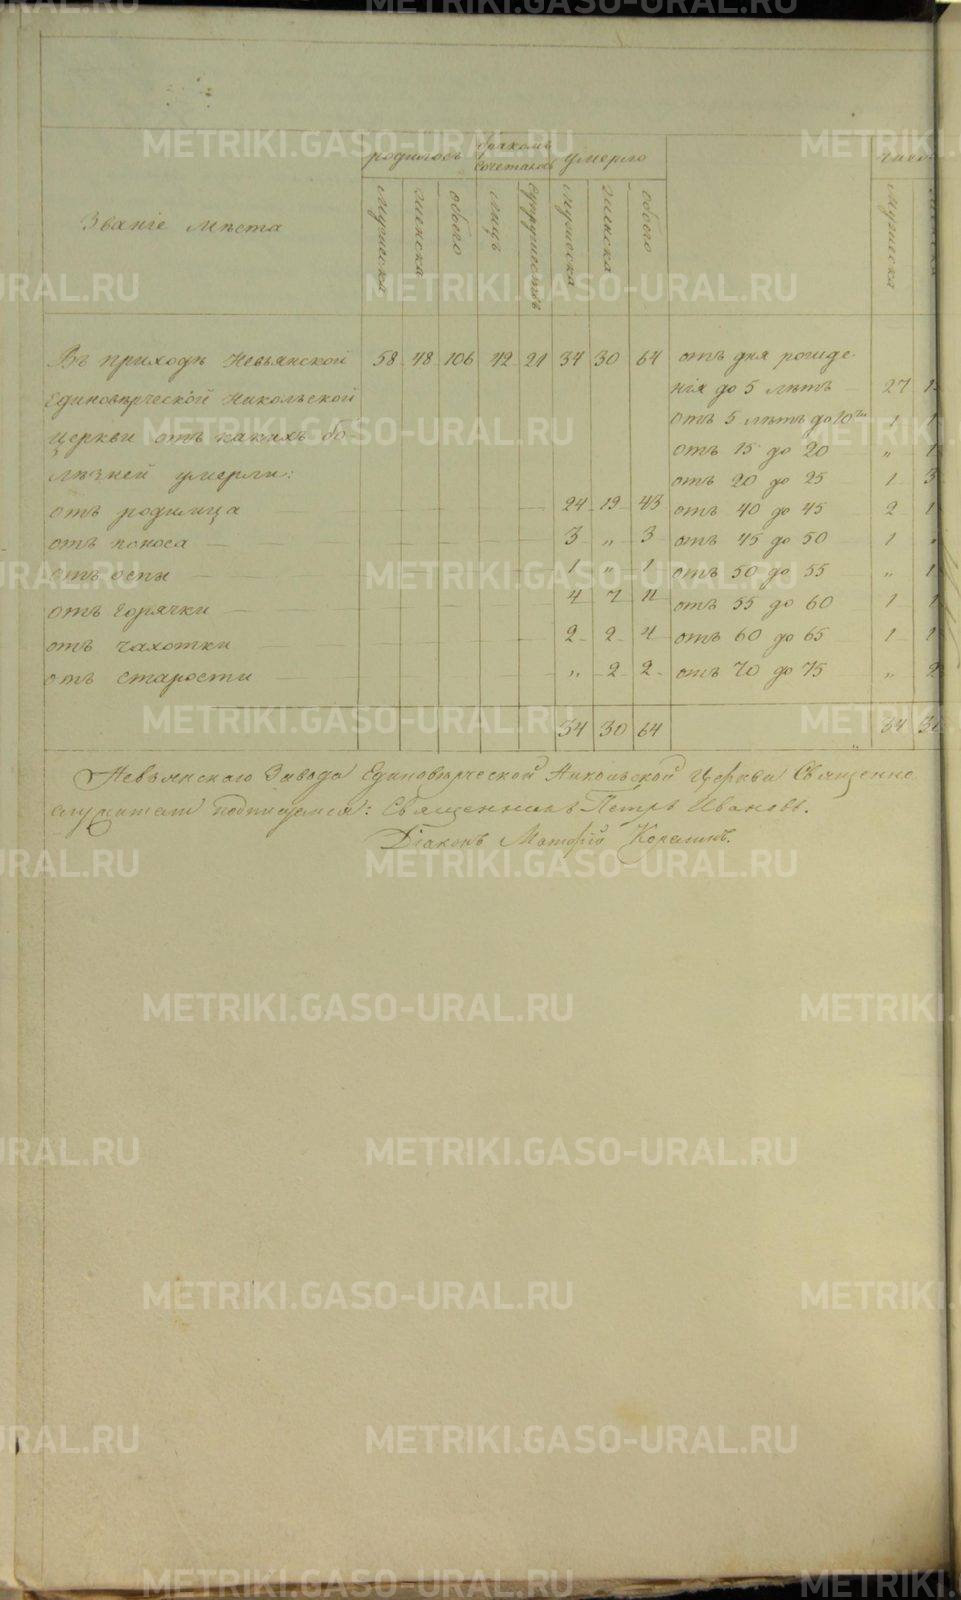 родилось бракомъ сочеталось умерло число
Званіе мѣста мужеска женска обоего лицъ супружествъ мужеска женска обоего мужеска женска
Въ приходѣ Невьянской 58 48 106 42 21 34 30 64 отъ дня рожде-
Единовѣрческой Никольской нія до 5 лѣтъ — 27
церкви отъ какихъ бо- отъ 5 лѣтъ до 10ти 1 1
лѣзней умерли: отъ 15 до 20 „ 1
отъ 20 до 25 1 3
отъ родимца 24 19 43 отъ 40 до 45 2 1
отъ поноса 3 „ 3 отъ 45 до 50 1 „
отъ оспы 1 „ 1 отъ 50 до 55 „ 1
отъ горячки 4 7 11 отъ 55 до 60 1 1
отъ чахотки 2 2 4 отъ 60 до 65 1 1
отъ старости „ 2 2 отъ 70 до 75 „ 2
34 30 64 34 30
Невьянскаго Завода Единовѣрческой Никольской Церкви Священно-
служители подписуемся: Священникъ Петръ Ивановъ.
Діаконъ
METRIKI.GASO-URAL.RU